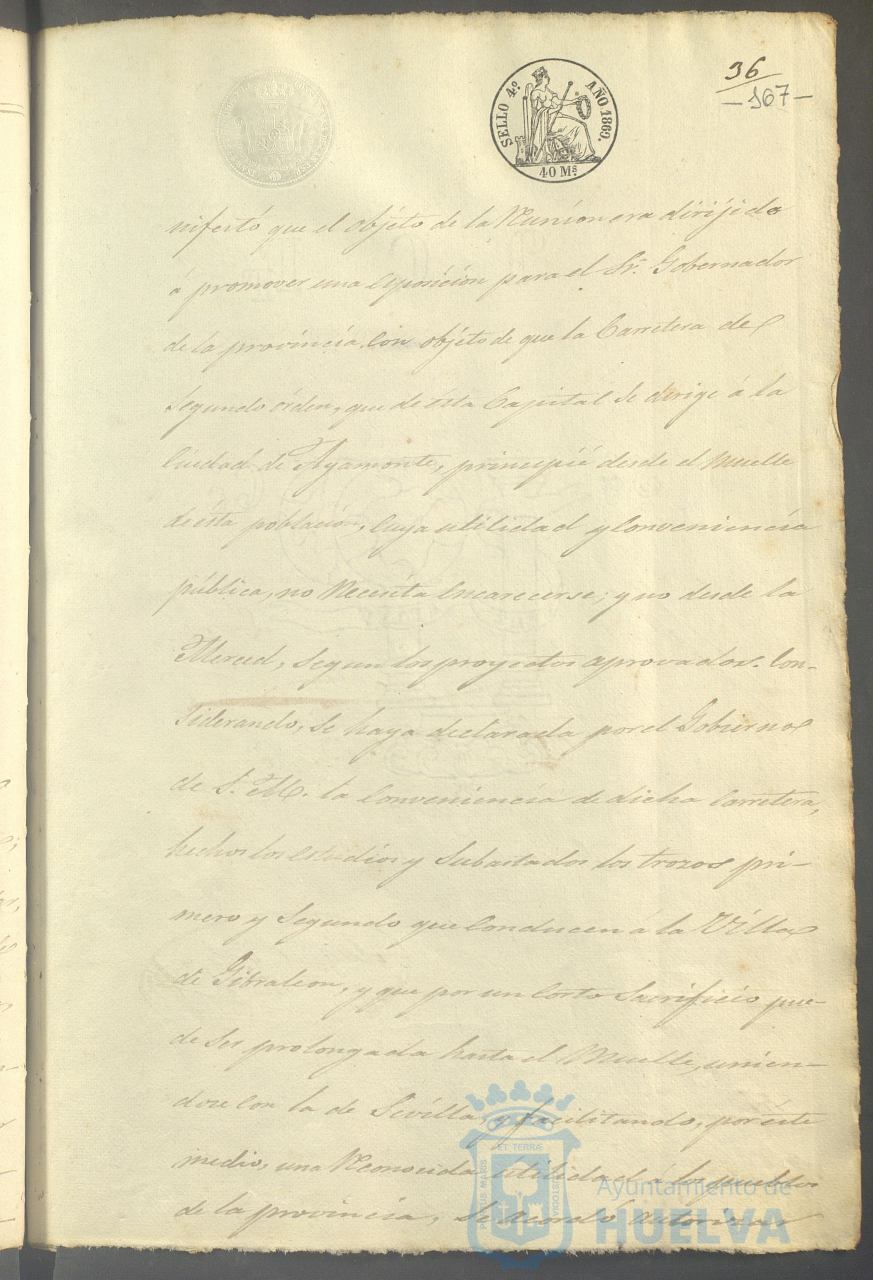 36
—167—
SELLO 4.º AÑO 1860.
40 M.s
nifestó que el objéto de la Reunion era dirijido
á promover una esposicion para el Sr. Gobernador
de la provincia, con objéto de que la Carretera de
segundo órden, que de ésta Capital se dirige á la
Ciudad de Ayamonte, principié desde el Muelle
de ésta poblacion, cuya utilidad y conveniencia
pública, no necesita encarecerse; y no desde la
Merced, segun los proyectos aprovados. Con-
siderando, se haya declarada por el Gobierno
de S. M. la conveniencia de dicha Carretera,
hechos los estudios y subastados los trozos pri-
mero y segundo que conducen á la Villa
de Gibraleon, y que por un corto sacrificio pue-
de ser prolongada hasta el Muelle, unien-
dose con la de Sevilla, y facilitando, por éste
medio, una reconocida utilidad á los pueblos
de la provincia, se acordó autorizar
PORTUS MARIS ET TERRÆ CUSTODIA
Ayuntamiento de
HUELVA